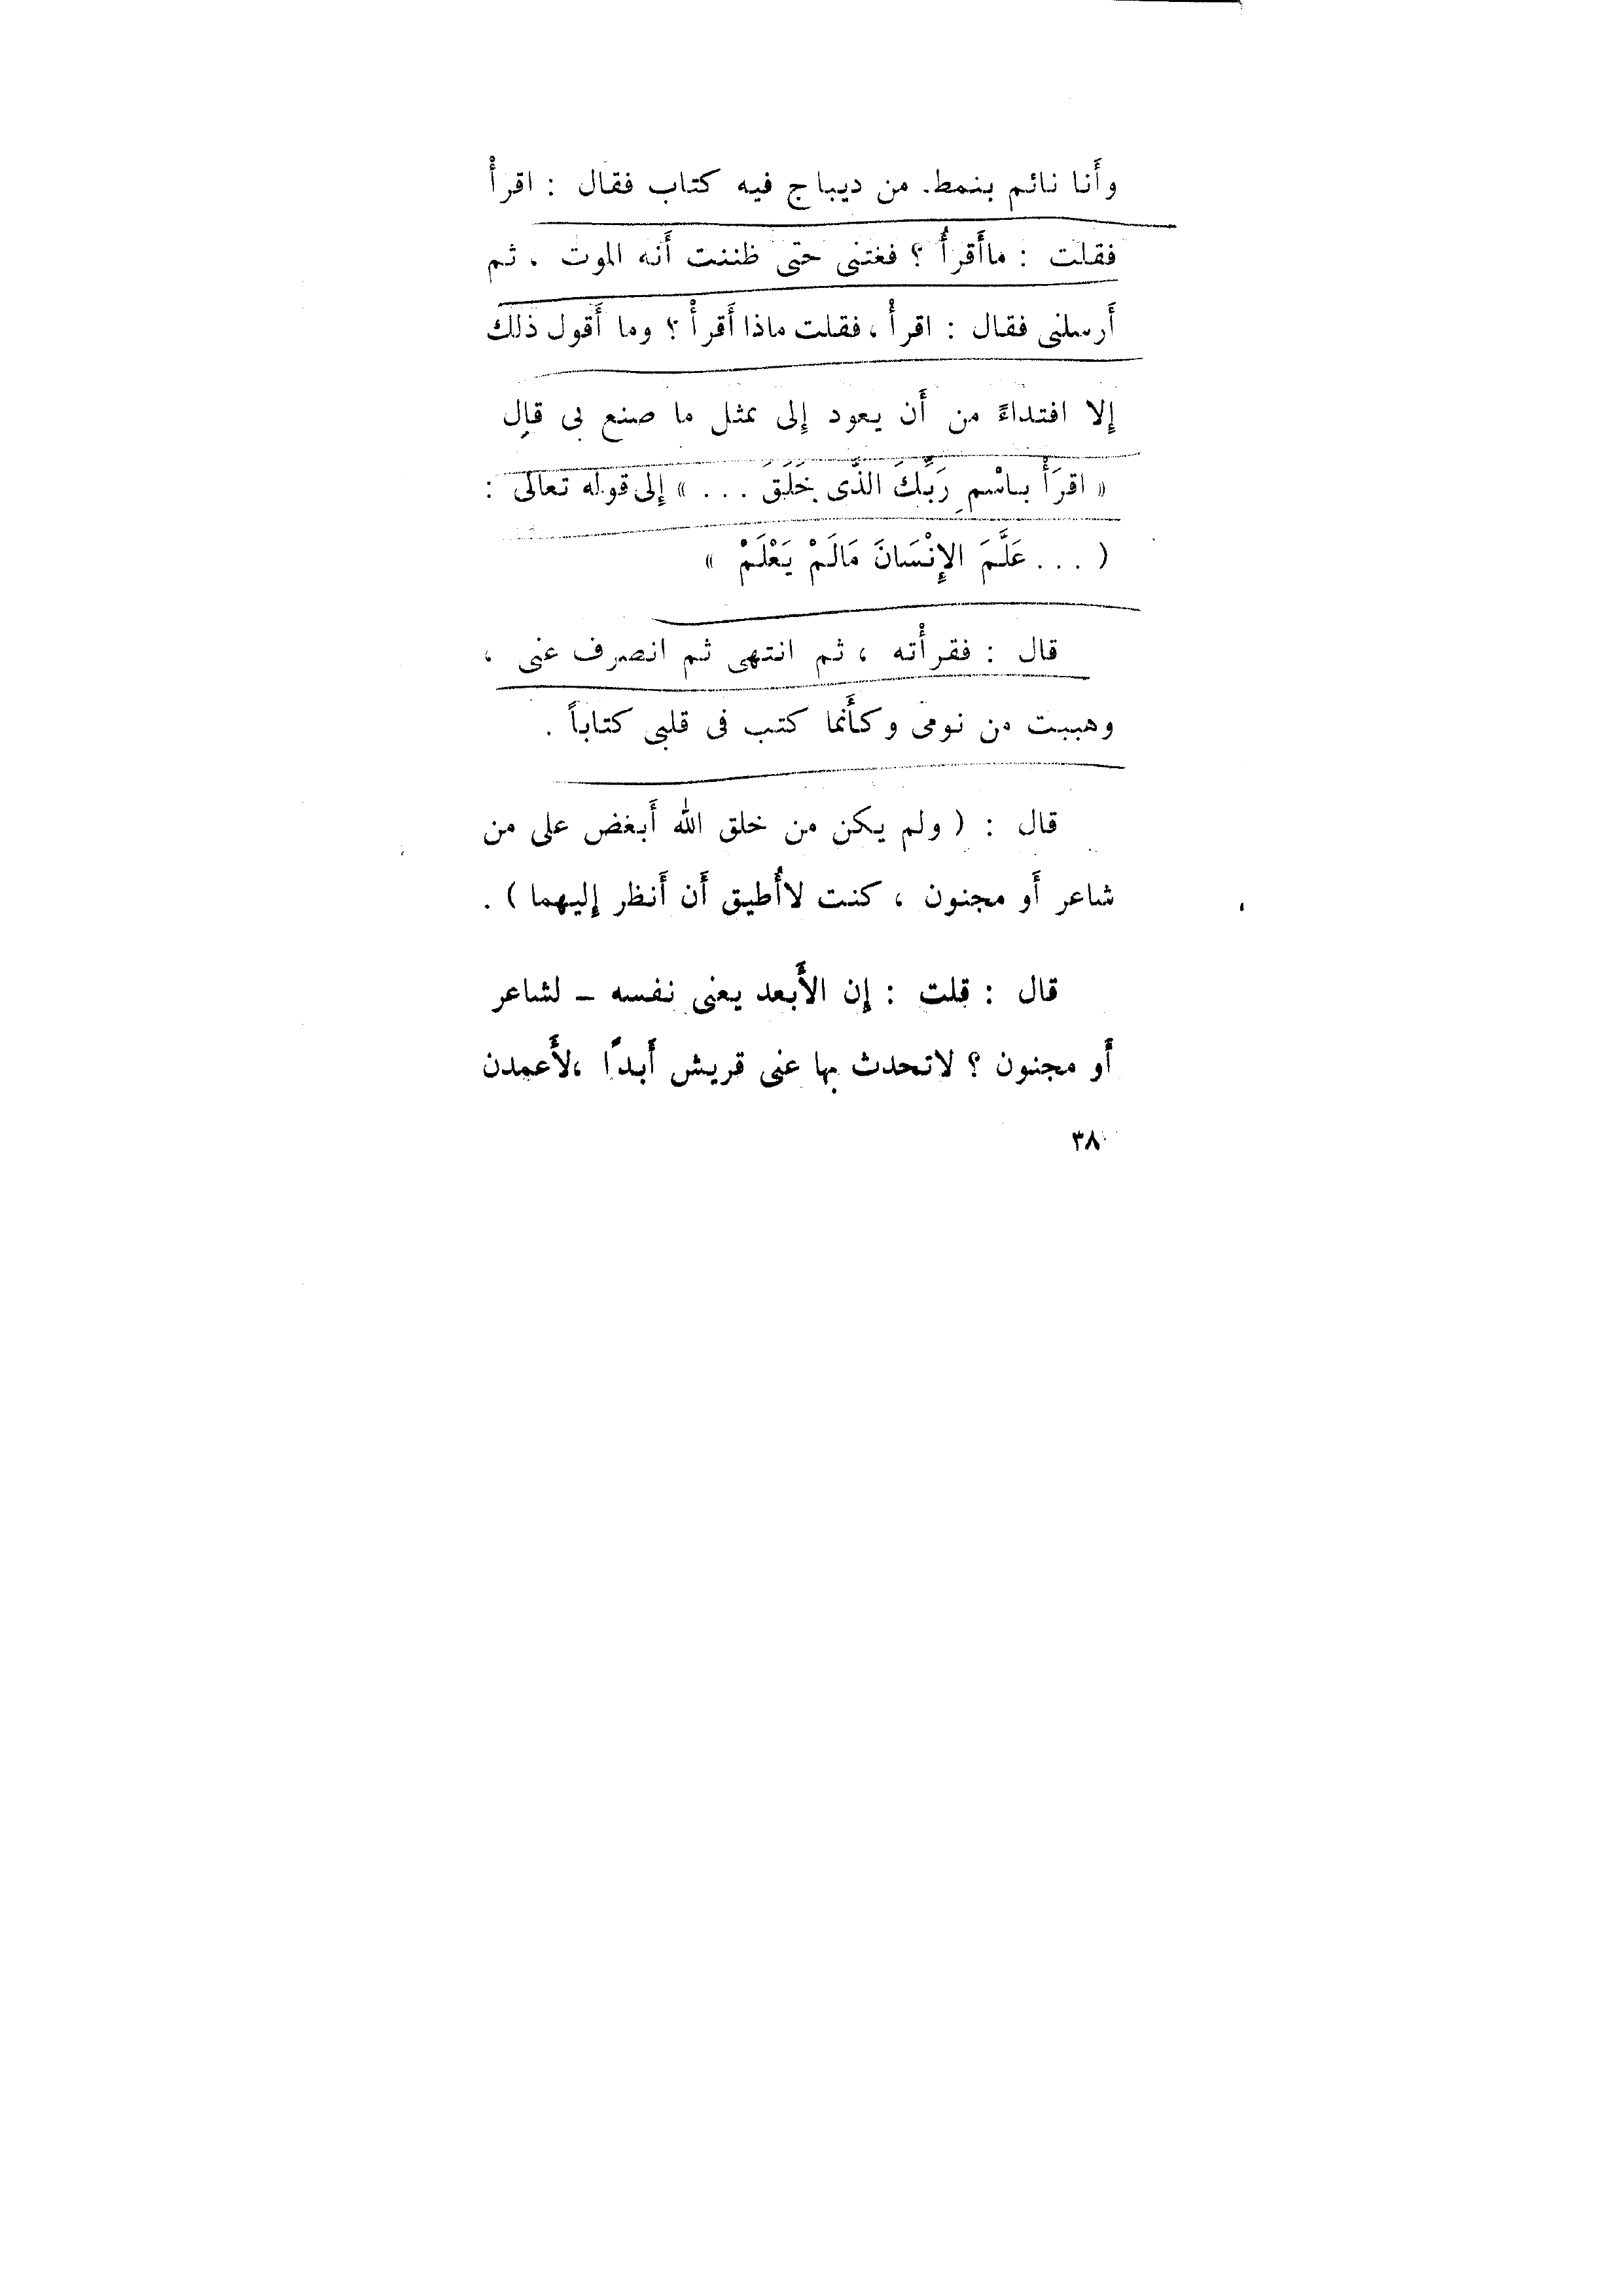 وأَنا نائم بنمط. من ديباج فيه كتاب فقال : اقرأْ
فقلت : ماأَقرأُ ؟ فغتنى حتى ظننت أَنه الموت ، ثم
أَرسلنى فقال : اقرأْ ، فقلت ماذا أَقرأْ ؟ وما أَقول ذلك
إِلا افتداءً من أَن يعود إِلى بمثل ما صنع بى قال
« اقرَأْ بِاسْمِ رَبِّكَ الذَّى خَلَقَ . . . » إِلى قوله تعالى :
( . . . عَلَّمَ الإِنْسَانَ مَالَمْ يَعْلَمْ »
قال : فقرأْته ، ثم انتهى ثم انصرف عنى ،
وهببت من نومى وكأَنما كتب فى قلبى كتاباً .
قال : ( ولم يكن من خلق الله أَبغض على من
شاعر أَو مجنون ، كنت لاأُطيق أَن أَنظر إِليهما ) .
قال : قلت : إِن الأَبعد يعنى نفسه – لشاعر
أَو مجنون ؟ لاتحدث بها عنى قريش أَبدًا ،لأَعمدن
٣٨